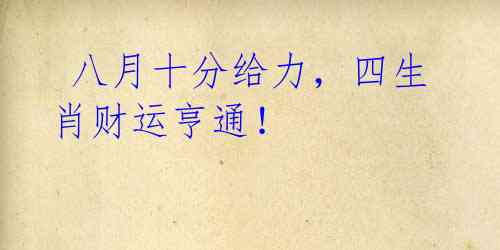 八月十分给力，四生
肖财运亨通！